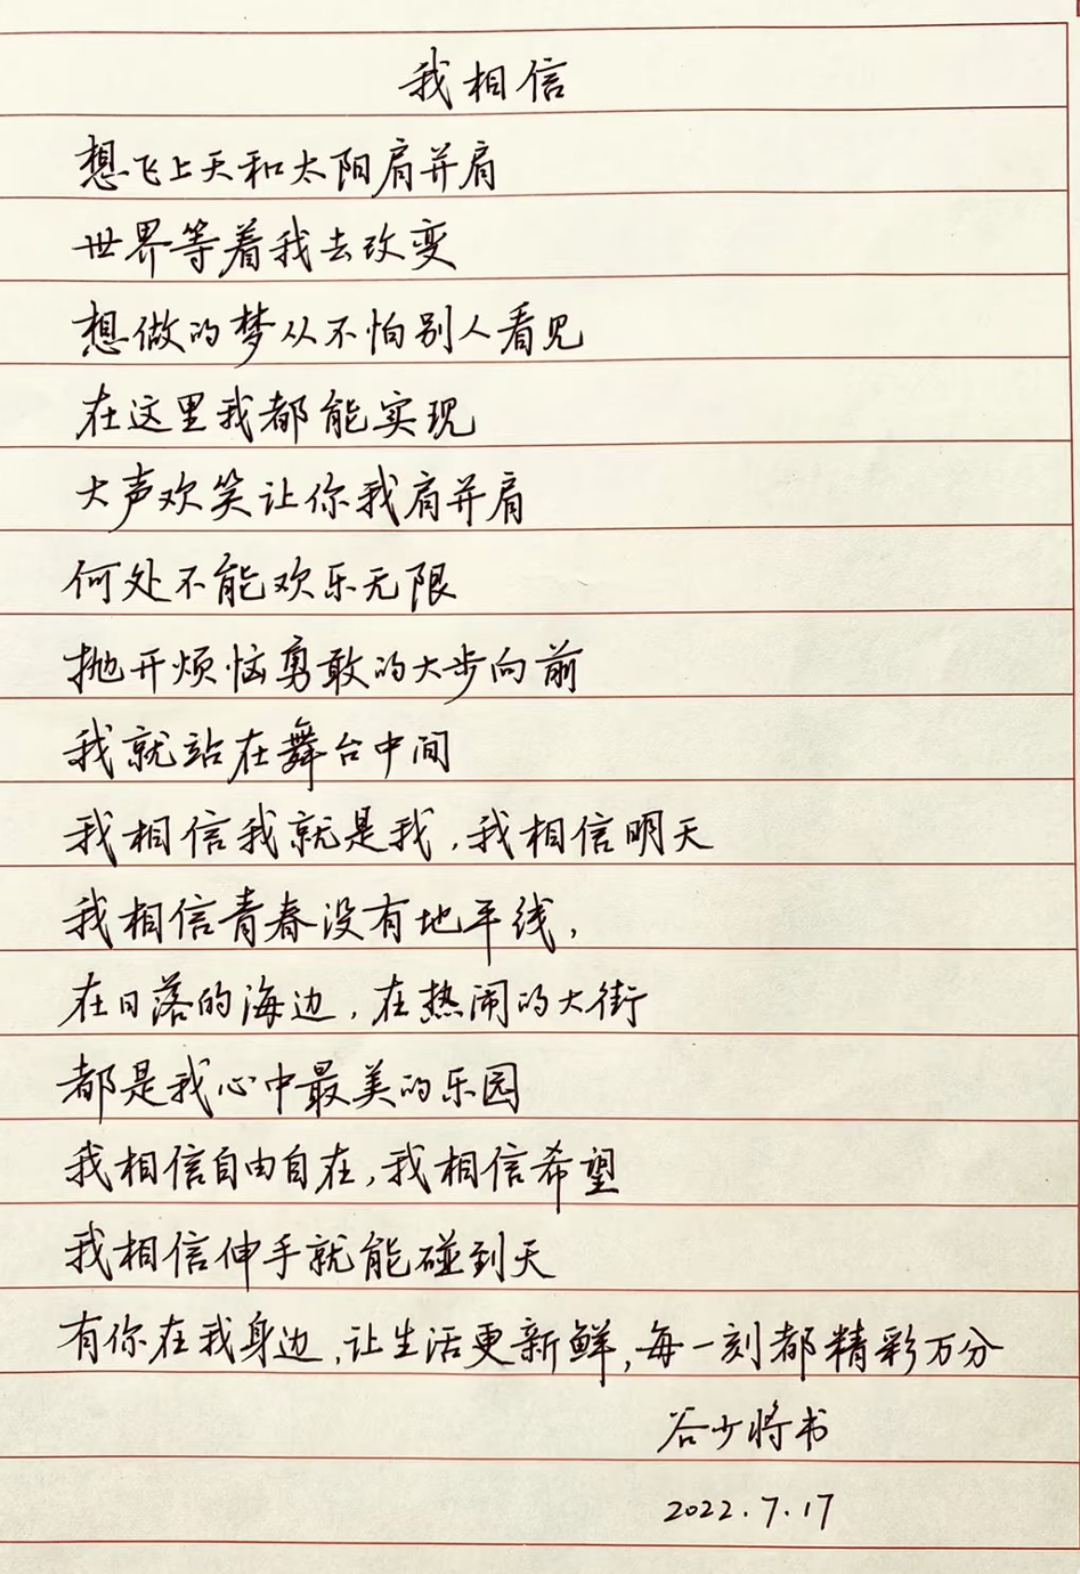 我相信
想飞上天和太阳肩并肩
世界等着我去改变
想做的梦从不怕别人看见
在这里我都能实现
大声欢笑让你我肩并肩
何处不能欢乐无限
抛开烦恼勇敢的大步向前
我就站在舞台中间
我相信我就是我,我相信明天
我相信青春没有地平线,
在日落的海边,在热闹的大街
都是我心中最美的乐园
我相信自由自在,我相信希望
我相信伸手就能碰到天
有你在我身边,让生活更新鲜,每一刻都精彩万分
谷少将书
2022.7.17